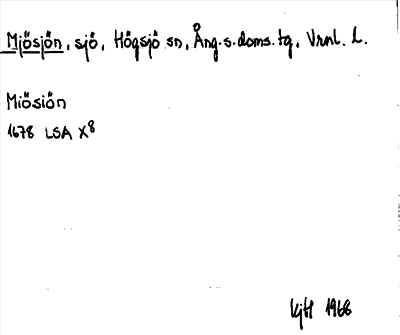 Mjösjön, sjö, Högsjö sn, Ång.s.doms.tg, Vrnl. L.
Miösiön
1678 LSA X8
KjH 1966